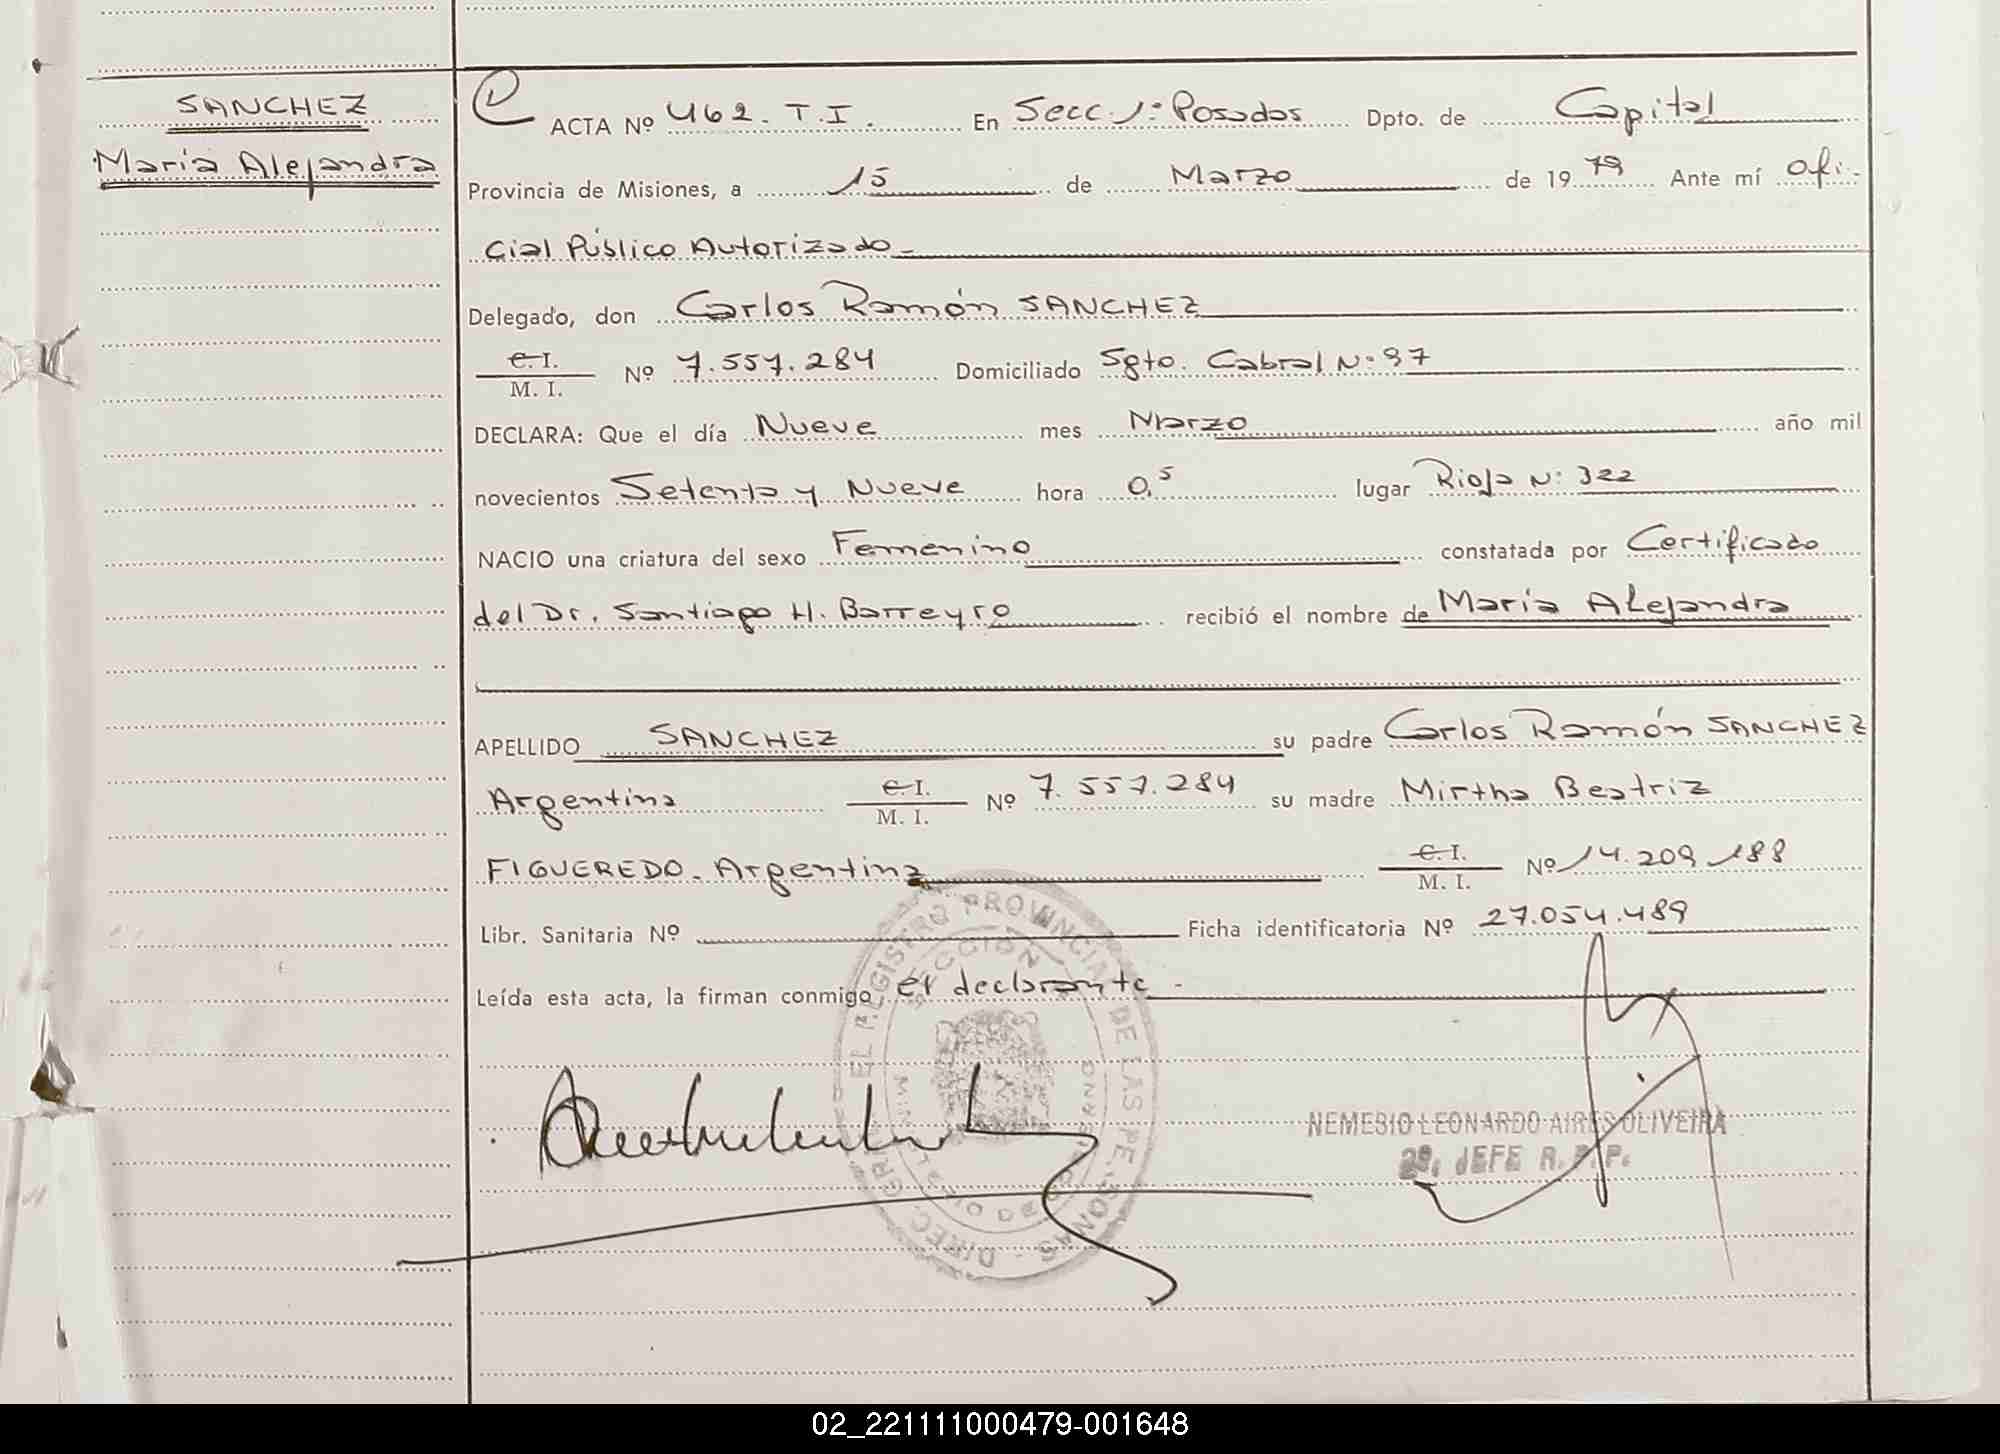 SANCHEZ
María Alejandra
ACTA Nº 462. T. I. En Secc. 1: Posadas Dpto. de Capital
Provincia de Misiones, a 15 de Marzo de 1979 Ante mí Ofi-
cial Público Autorizado-
Delegado, don Carlos Ramón SANCHEZ
C. I.
M. I. Nº 7.557.284 Domiciliado Sgto. Cabral N: 97
DECLARA: Que el día Nueve mes Marzo año mil
novecientos Setenta y Nueve hora 0,5 lugar Rioja N: 322
NACIO una criatura del sexo Femenino constatada por Certificado
del Dr. Santiago H. Barreyro recibió el nombre de María Alejandra
APELLIDO SANCHEZ su padre Carlos Ramón SANCHEZ
Argentina C. I. M. I. Nº 7.557.284 su madre Mirtha Beatriz
FIGUEREDO. Argentina C. I. M. I. Nº 14.209.188
Libr. Sanitaria Nº Ficha identificatoria Nº 27.054.489
Leída esta acta, la firman conmigo, el declarante -
DIREC. GRAL. DEL REGISTRO PROVINCIAL DE LAS PERSONAS
NEMESIO LEONARDO AIRES OLIVEIRA
2º. JEFE R. P. P.
02_221111000479-001648